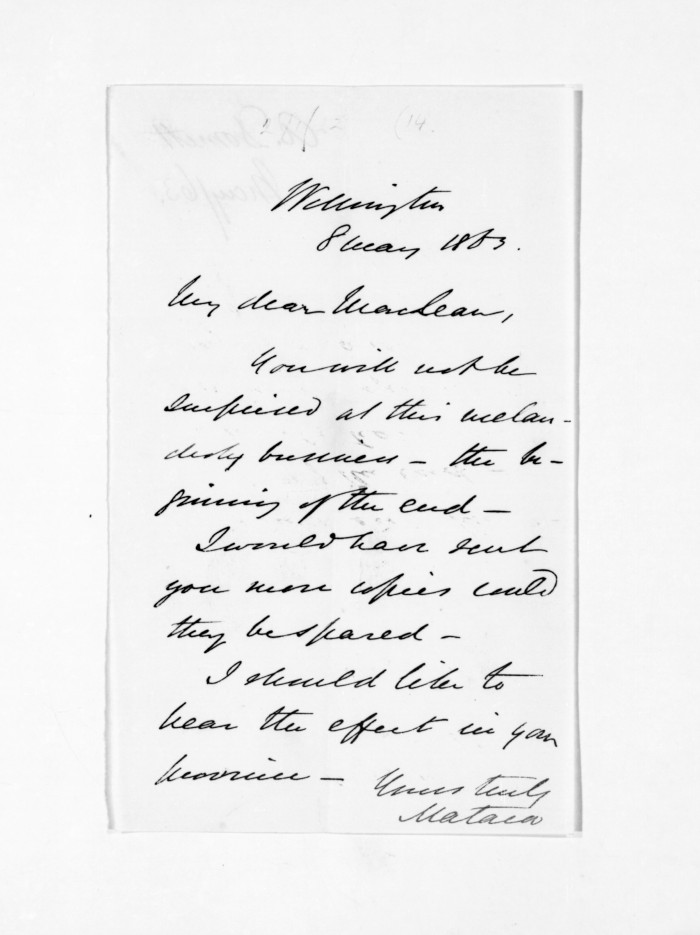 (14.
Wellington
8 May 1863.
My dear MacLean,
You will not be
surprised at this melan-
choly business - the be-
ginning of the end -
I would have sent
you more copies could
they be spared -
I should like to
hear the effect in your
province -
Yours truly